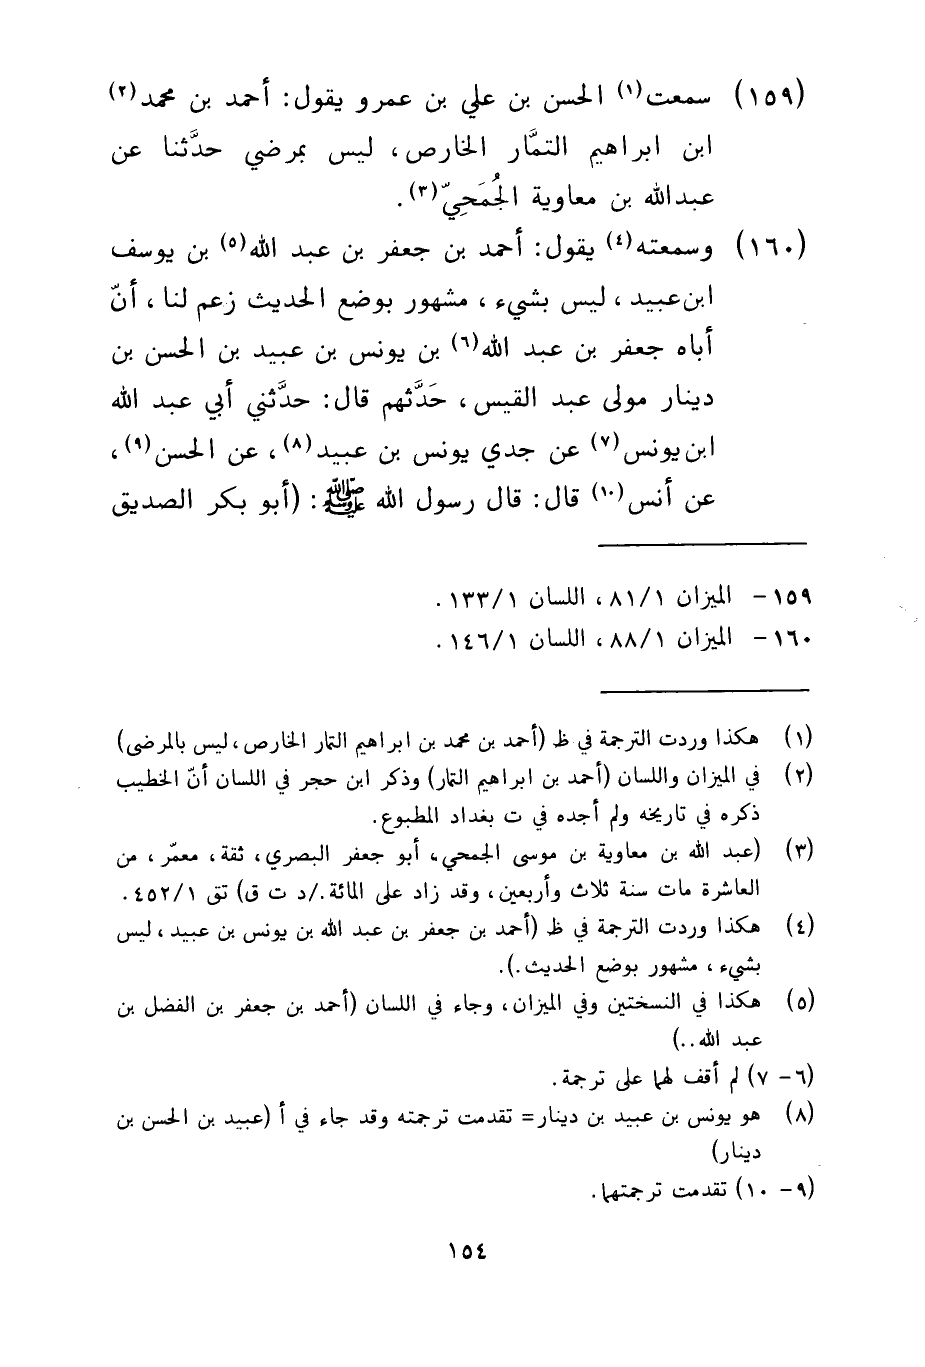 (١٥٩) سمعت(١) الحسن بن علي بن عمرو يقول: أحمد بن محمد(٢)
ابن ابراهيم التمَّار الخارص، ليس بمرضي حدَّثنا عن
عبدالله بن معاوية الجُمَحِيّ(٣).
(١٦٠) وسمعته(٤) يقول: أحمد بن جعفر بن عبد الله(٥) بن يوسف
ابن عبيد، ليس بشيء، مشهور بوضع الحديث زعم لنا، أنّ
أباه جعفر بن عبد الله(٦) بن يونس بن عبيد بن الحسن بن
دينار مولى عبد القيس، حَدَّثهم قال: حدَّثني أبي عبد الله
ابن يونس(٧) عن جدي يونس بن عبيد(٨)، عن الحسن(٩)،
عن أنس(١٠) قال: قال رسول الله ﷺ: (أبو بكر الصديق
١٥٩- الميزان ٨١/١، اللسان ١٣٣/١.
١٦٠- الميزان ٨٨/١، اللسان ١٤٦/١.
(١) هكذا وردت الترجمة في ظ (أحمد بن محمد بن ابراهيم التمار الخارص، ليس بالمرضى)
(٢) في الميزان واللسان (أحمد بن ابراهيم التمار) وذكر ابن حجر في اللسان أنّ الخطيب
ذكره في تاريخه ولم أجده في ت بغداد المطبوع.
(٣) (عبد الله بن معاوية بن موسى الجمحي، أبو جعفر البصري، ثقة، معمّر، من
العاشرة مات سنة ثلاث وأربعين، وقد زاد على المائة./د ت ق) تق ٤٥٢/١.
(٤) هكذا وردت الترجمة في ظ (أحمد بن جعفر بن عبد الله بن يونس بن عبيد، ليس
بشيء، مشهور بوضع الحديث.).
(٥) هكذا في النسختين وفي الميزان، وجاء في اللسان (أحمد بن جعفر بن الفضل بن
عبد الله..)
(٦- ٧) لم أقف لهما على ترجمة.
(٨) هو يونس بن عبيد بن دينار= تقدمت ترجمته وقد جاء في أ (عبيد بن الحسن بن
دينار)
(٩- ١٠) تقدمت ترجمتهما.
١٥٤